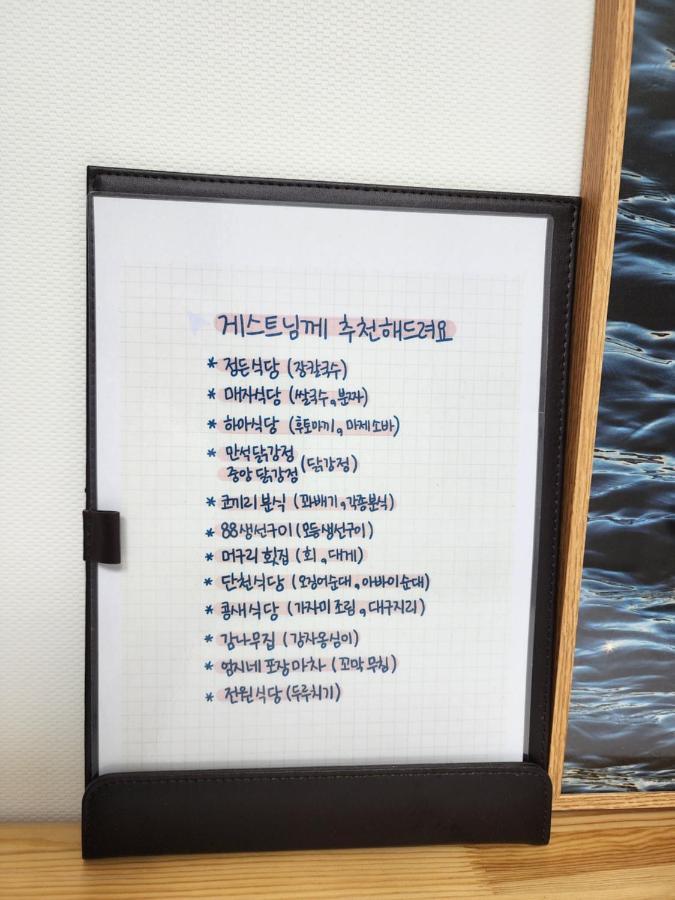 게스트님께 추천해드려요
* 점든식당 (장칼국수)
* 매자식당 (쌀국수, 분짜)
* 하아식당 (후토마끼, 마제소바)
* 만석닭강정
중앙닭강정 (닭강정)
* 코끼리분식 (꽈배기, 각종분식)
* 88생선구이 (모둠생선구이)
* 머구리횟집 (회, 대게)
* 단천식당 (오징어순대, 아바이순대)
* 콩새식당 (가자미조림, 대구지리)
* 감나무집 (감자옹심이)
* 엄지네포장마차 (꼬막무침)
* 전원식당 (두루치기)